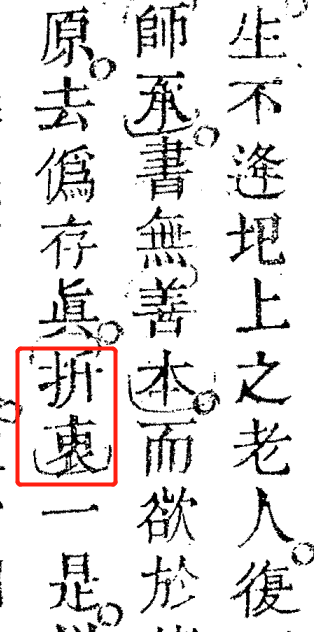 生不逢圯上之老人復
師承書無善本而欲於
原去僞存眞折衷一是